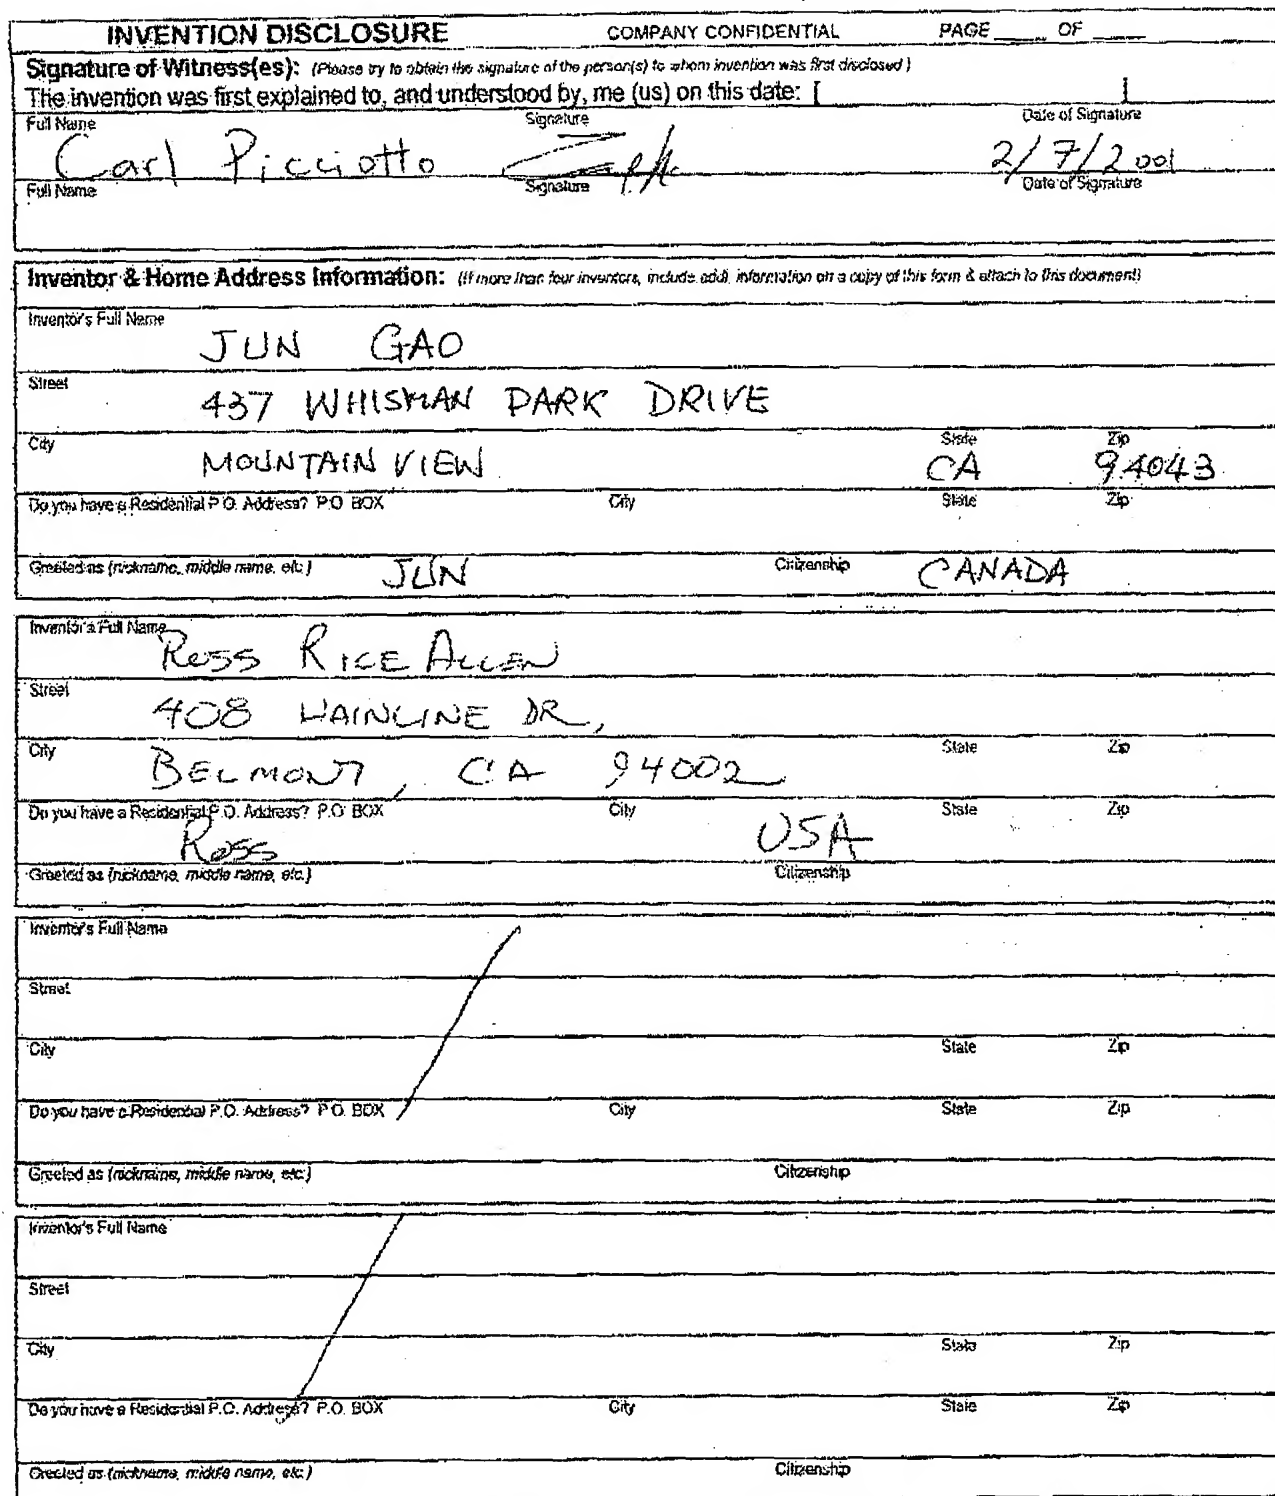 INVENTION DISCLOSURE COMPANY CONFIDENTIAL PAGE ____ OF ____
Signature of Witness(es): (Please try to obtain the signature of the person(s) to whom invention was first disclosed)
The invention was first explained to, and understood by, me (us) on this date: [ ]
Full Name Signature Date of Signature
Carl Picciotto 2/7/2001
Full Name Signature Date of Signature
Inventor & Home Address Information: (If more than four inventors, include addl. information on a copy of this form & attach to this document)
Inventor's Full Name
JUN GAO
Street
437 WHISMAN PARK DRIVE
City State Zip
MOUNTAIN VIEW CA 94043
Do you have a Residential P.O. Address? P.O. BOX City State Zip
Greeted as (nickname, middle name, etc.) JUN Citizenship CANADA
Inventor's Full Name
ROSS RICE ALLEN
Street
408 HAINLINE DR,
City State Zip
BELMONT, CA 94002
Do you have a Residential P.O. Address? P.O. BOX City State Zip
Ross USA
Greeted as (nickname, middle name, etc.) Citizenship
Inventor's Full Name
Street
City State Zip
Do you have a Residential P.O. Address? P.O. BOX City State Zip
Greeted as (nickname, middle name, etc.) Citizenship
Inventor's Full Name
Street
City State Zip
Do you have a Residential P.O. Address? P.O. BOX City State Zip
Greeted as (nickname, middle name, etc.) Citizenship